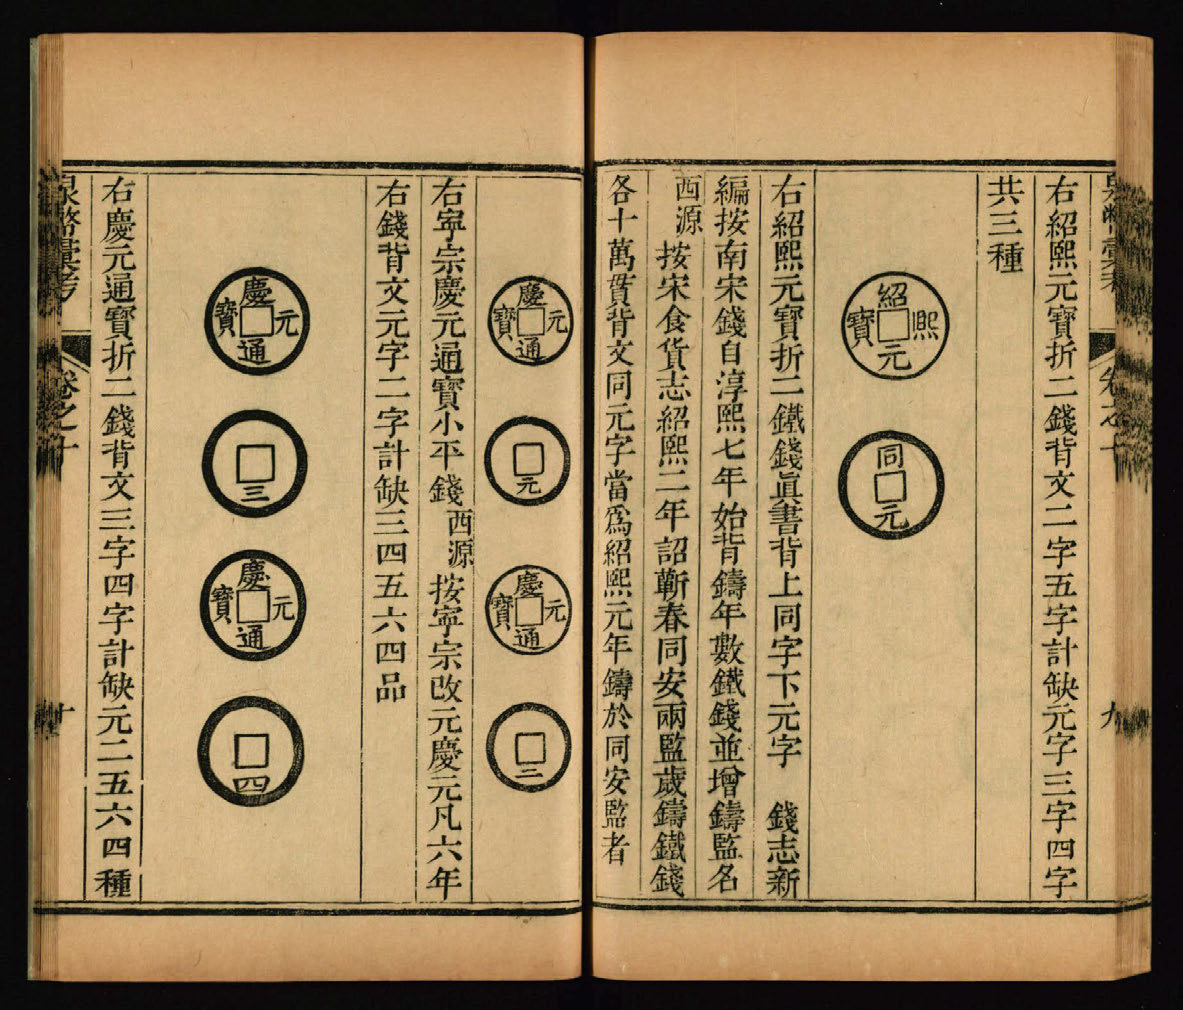 泉幣彙考
卷之十
九
右紹熙元寶折二錢背文二字五字計缺元字三字四字
共三種
紹熙元寶
同元
右紹熙元寶折二鐵錢眞書背上同字下元字　錢志新
編按南宋錢自淳熙七年始背鑄年數鐵錢並增鑄監名
西源　按宋食貨志紹熙二年詔蘄春同安兩監歲鑄鐵錢
各十萬貫背文同元字當爲紹熙元年鑄於同安監者
慶元通寶
元
慶元通寶
二
右寧宗慶元通寶小平錢　西源　按寧宗改元慶元凡六年
右錢背文元字二字計缺三四五六四品
慶元通寶
三
慶元通寶
四
右慶元通寶折二錢背文三字四字計缺元二五六四種
泉幣彙考
卷之十
十